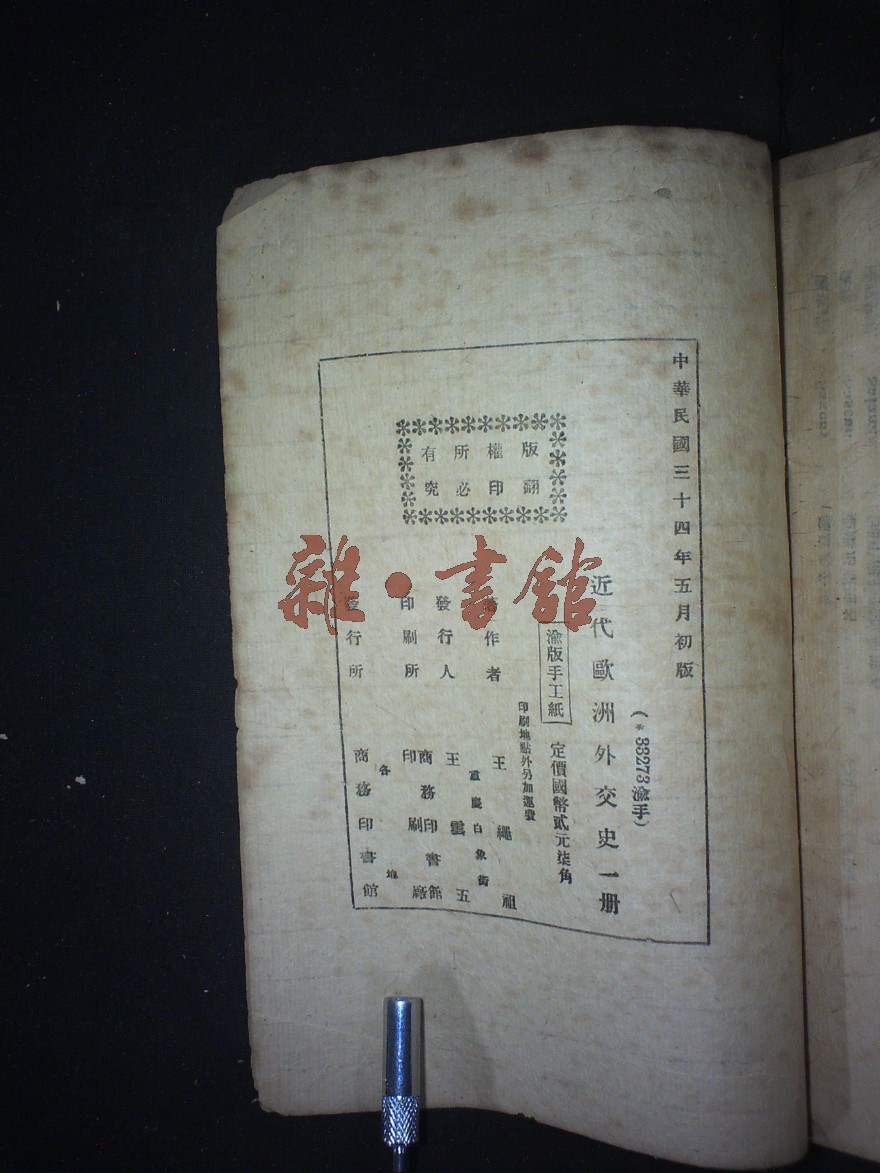 中華民國三十四年五月初版
(*33273渝手)
近代歐洲外交史一册
渝版手工紙
定價國幣貳元柒角
印刷地點外另加運費
版權所有
翻印必究
作者 王繩祖
重慶白象街
發行人 王雲五
印刷所 商務印書館印刷廠
發行所 各地商務印書館
雜·書館